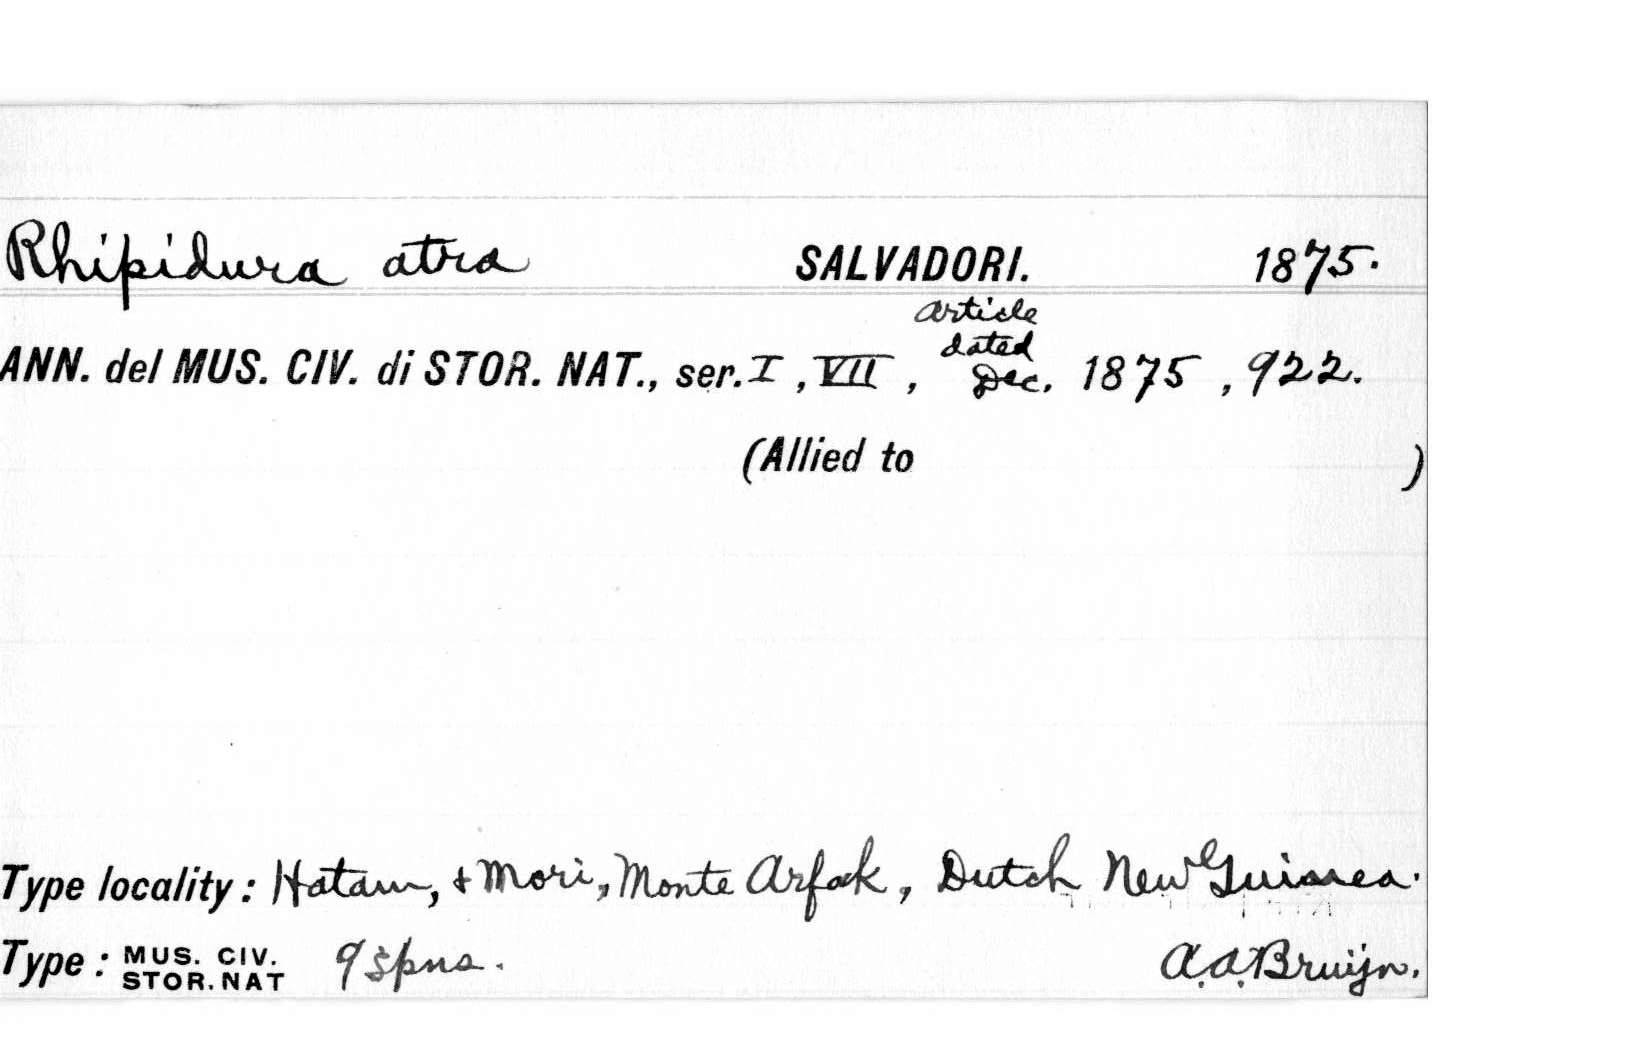 Rhipidura atra SALVADORI. 1875.
ANN. del MUS. CIV. di STOR. NAT., ser. I, VII, Article dated Dec. 1875, 922.
(Allied to )
Type locality: Hatam, & Mori, Monte Arfak, Dutch New Guinea.
Type: MUS. CIV. STOR. NAT 9 spns. A.A. Bruijn.